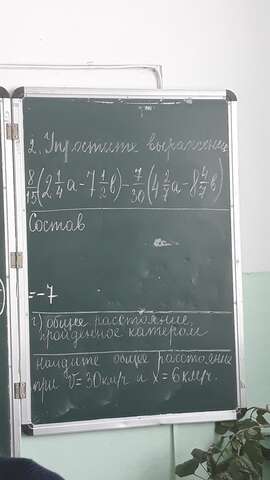 2. Упростите выражение
8/15(2 1/4 a - 7 1/2 в) - 7/30(4 2/7 a - 8 4/7 в)
Состав
= -7
г) общее расстояние,
пройденное катером
найдите общее расстояние
при V = 30 км/ч и x = 6 км/ч.